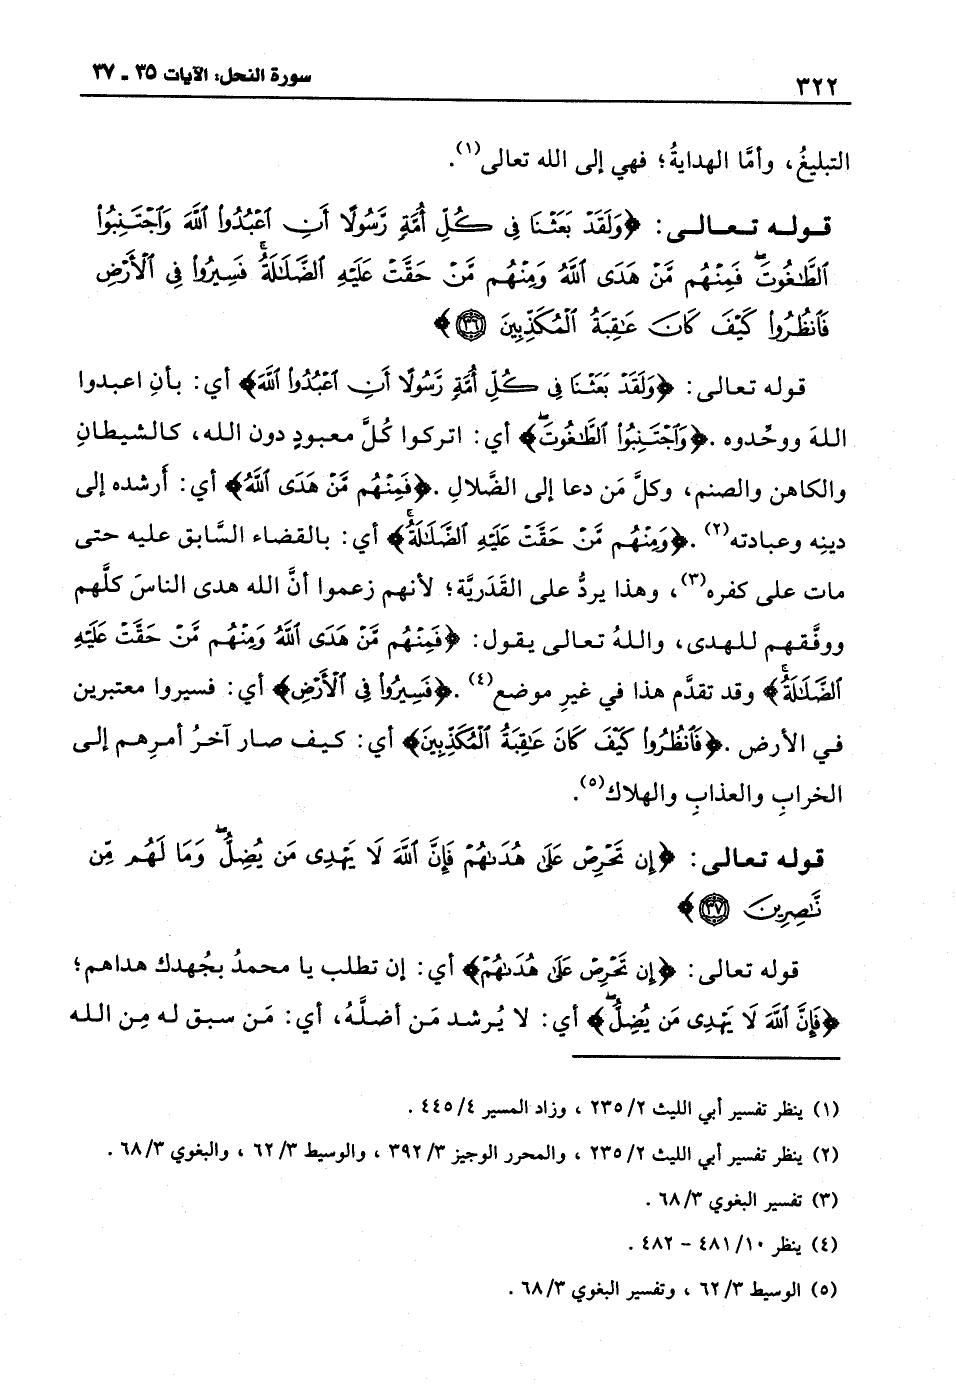 ٣٢٢
سورة النحل: الآيات ٣٥ ـ ٣٧
التبليغُ، وأمَّا الهدايةُ؛ فهي إلى الله تعالى(١).
قوله تعالى: ﴿وَلَقَدْ بَعَثْنَا فِي كُلِّ أُمَّةٍ رَّسُولًا أَنِ اعْبُدُوا اللَّهَ وَاجْتَنِبُوا
الطَّاغُوتَ فَمِنْهُم مَّنْ هَدَى اللَّهُ وَمِنْهُم مَّنْ حَقَّتْ عَلَيْهِ الضَّلَالَةُ فَسِيرُوا فِي الْأَرْضِ
فَانظُرُوا كَيْفَ كَانَ عَاقِبَةُ الْمُكَذِّبِينَ ٣٦﴾
قوله تعالى: ﴿وَلَقَدْ بَعَثْنَا فِي كُلِّ أُمَّةٍ رَّسُولًا أَنِ اعْبُدُوا اللَّهَ﴾ أي: بأنِ اعبدوا
اللهَ ووحِّدوه. ﴿وَاجْتَنِبُوا الطَّاغُوتَ﴾ أي: اتركوا كُلَّ معبودٍ دون الله، كالشيطانِ
والكاهن والصنم، وكلَّ مَن دعا إلى الضَّلالِ. ﴿فَمِنْهُم مَّنْ هَدَى اللَّهُ﴾ أي: أَرشده إلى
دينِه وعبادته(٢). ﴿وَمِنْهُم مَّنْ حَقَّتْ عَلَيْهِ الضَّلَالَةُ﴾ أي: بالقضاء السَّابق عليه حتى
مات على كفره(٣)، وهذا يردُّ على القَدَريَّة؛ لأنهم زعموا أنَّ الله هدى الناسَ كلَّهم
ووفَّقهم للهدى، واللهُ تعالى يقول: ﴿فَمِنْهُم مَّنْ هَدَى اللَّهُ وَمِنْهُم مَّنْ حَقَّتْ عَلَيْهِ
الضَّلَالَةُ﴾ وقد تقدَّم هذا في غيرِ موضع(٤). ﴿فَسِيرُوا فِي الْأَرْضِ﴾ أي: فسيروا معتبرين
في الأرض. ﴿فَانظُرُوا كَيْفَ كَانَ عَاقِبَةُ الْمُكَذِّبِينَ﴾ أي: كيف صار آخرُ أمرِهم إلى
الخرابِ والعذابِ والهلاك(٥).
قوله تعالى: ﴿إِن تَحْرِصْ عَلَى هُدَاهُمْ فَإِنَّ اللَّهَ لَا يَهْدِي مَن يُضِلُّ وَمَا لَهُم مِّن
نَّاصِرِينَ ٣٧﴾
قوله تعالى: ﴿إِن تَحْرِصْ عَلَى هُدَاهُمْ﴾ أي: إن تطلب يا محمدُ بجُهدك هداهم؛
﴿فَإِنَّ اللَّهَ لَا يَهْدِي مَن يُضِلُّ﴾ أي: لا يُرشد مَن أضلَّهُ، أي: مَن سبق له مِن الله
(١) ينظر تفسير أبي الليث ٢/ ٢٣٥ ، وزاد المسير ٤/ ٤٤٥ .
(٢) ينظر تفسير أبي الليث ٢/ ٢٣٥ ، والمحرر الوجيز ٣/ ٣٩٢ ، والوسيط ٣/ ٦٢ ، والبغوي ٣/ ٦٨ .
(٣) تفسير البغوي ٣/ ٦٨ .
(٤) ينظر ١٠/ ٤٨١ – ٤٨٢ .
(٥) الوسيط ٣/ ٦٢ ، وتفسير البغوي ٣/ ٦٨ .